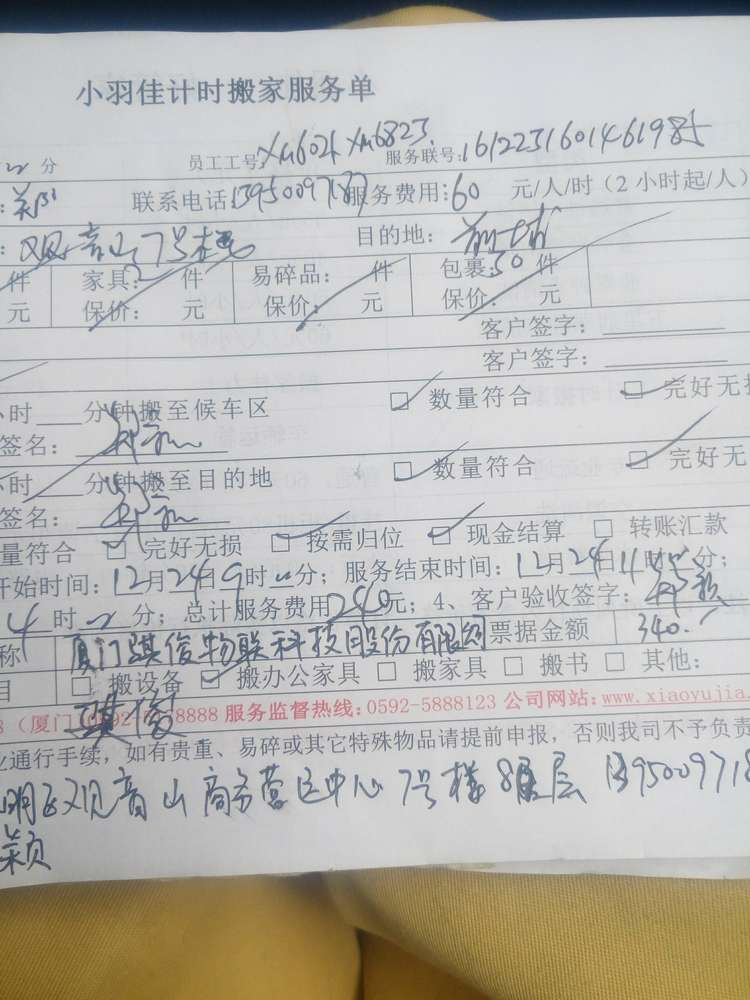 小羽佳计时搬家服务单
分 员工工号: xm6021 xm6823 服务联号: 1612231601461985
: 郑 联系电话: 服务费用: 60 元/人/时（2小时起/人）
: 观音山7号楼 目的地: 前埔
件 家具: 2 件 易碎品: 件 包裹: 50 件
元 保价: 元 保价: 元 保价: 元
客户签字:
客户签字:
小时 分钟搬至候车区 □ 数量符合 □ 完好无损
签名:
小时 分钟搬至目的地 □ 数量符合 □ 完好无
签名:
量符合 □ 完好无损 □ 按需归位 □ 现金结算 □ 转账汇款
开始时间: 12月24日9时 分; 服务结束时间: 12月24日11时 分;
4 时 分; 总计服务费用 240 元; 4、客户验收签字:
称 厦门骐俊物联科技股份有限公司 票据金额 340.
目 □ 搬设备 □ 搬办公家具 □ 搬家具 □ 搬书 □ 其他:
8（厦门）0592-5888888 服务监督热线: 0592-5888123 公司网站: www.xiaoyujia.
骐俊
业通行手续，如有贵重、易碎或其它特殊物品请提前申报，否则我司不予负责
明区观音山商务营运中心7号楼8层 1395009718
颖